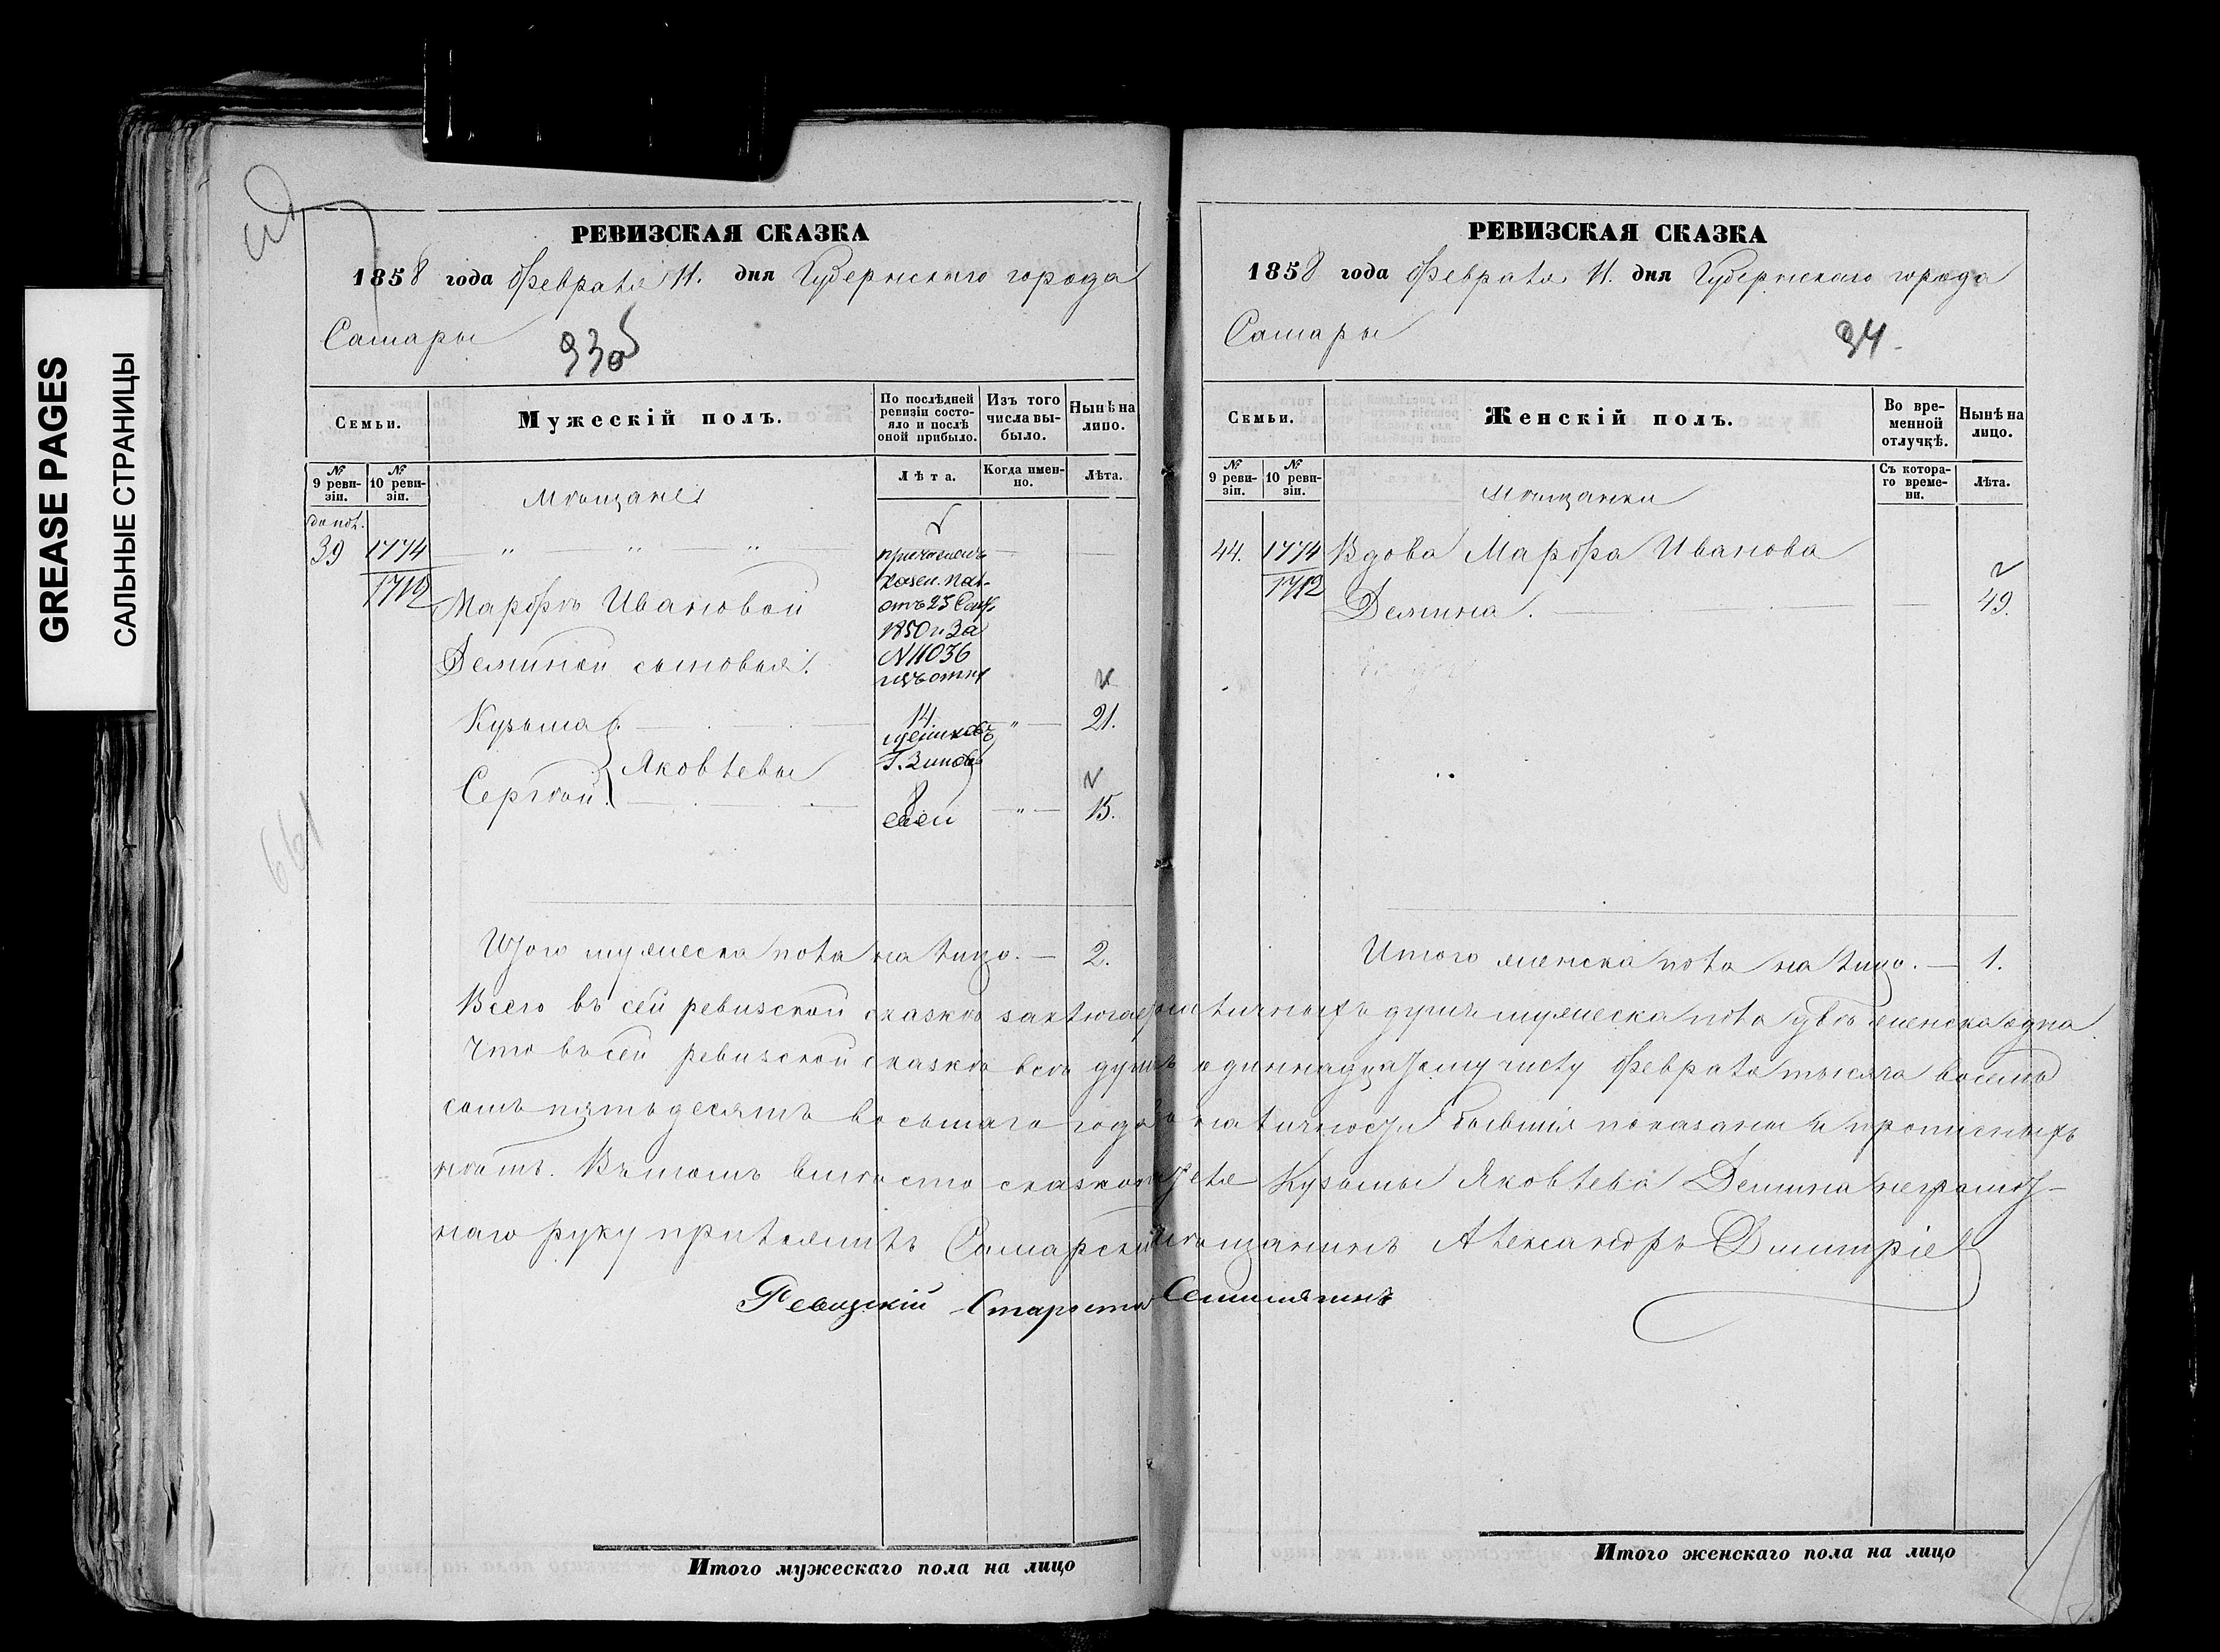 GREASE PAGES
САЛЬНЫЕ СТРАНИЦЫ
РЕВИЗСКАЯ СКАЗКА
1858 года Февраля 11. дня Губернскаго города
Самары
93об
Семьи.
Мужескій полъ.
По послѣдней ревизіи состояло и послѣ оной прибыло.
Изъ того числа выбыло.
Нынѣ на лицо.
№ 9 ревизіи.
№ 10 ревизіи.
Лѣта.
Когда именно.
Лѣта.
Мѣщане
допол.
39 1774
1712
причислены
казен. пал.
отъ 25 Сент.
1850 г. за
N 11036
Марфѣ Ивановой
Деминой сыновья:
Кузьма 14. " 21.
Яковлевы
Сергѣй 8 " 15.
661
Итого мужеска пола на лицо. — 2.
РЕВИЗСКАЯ СКАЗКА
1858 года Февраля 11. дня Губернскаго города
Самары
94.
Семьи.
Женскій полъ.
Во временной отлучкѣ.
Нынѣ на лицо.
№ 9 ревизіи.
№ 10 ревизіи.
Съ котораго времени.
Лѣта.
Мѣщанки
44. 1774 Вдова Марфа Иванова
1712 Демина. — 49.
Итого женска пола на лицо. — 1.
Всего въ сей ревизской сказкѣ заключается наличныхъ душъ мужеска пола двѣ женска одна
Что въ сей ревизской сказкѣ всѣ душъ одиннадцатому числу Февраля тысяча восемь
сотъ пятьдесятъ восьмаго года на личности бывшія показаны и прописныхъ
нѣтъ. Въ томъ вмѣсто сказкоподателя Кузьмы Яковлева Демина неграмот-
наго руку приложилъ Самарскій мѣщанинъ Александръ Димитріев
Ревизскій Староста
Итого мужескаго пола на лицо
Итого женскаго пола на лицо